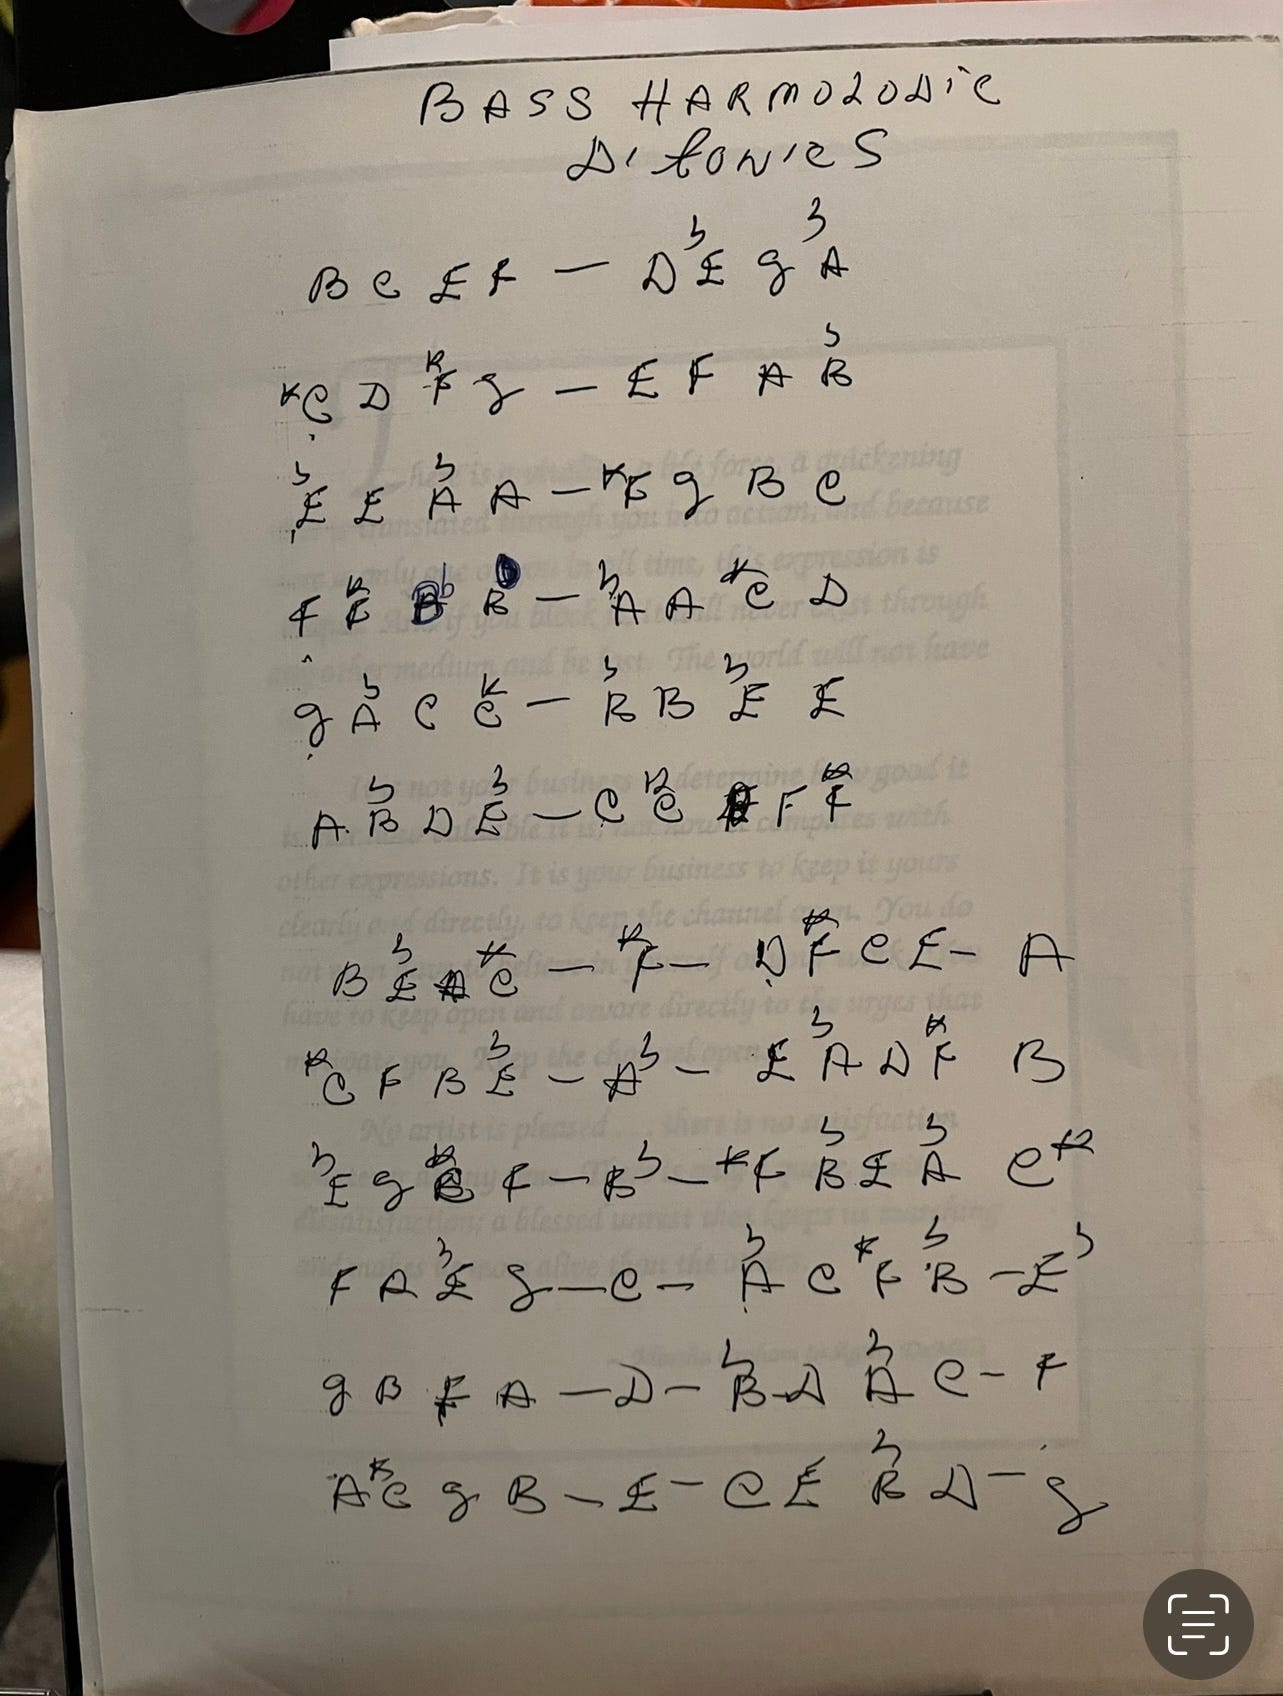 BASS HARMOLODIC
DITONICS
B C E F — D E♭ g A♭
♯C D F♯ g — E F A B♭
E♭ E A♭ A — ♯F g B C
F F♯ B♭ B — A♭ A ♯C D
g A♭ C C♯ — B♭ B E♭ E
A B♭ D E♭ — C C♯ F F♯
B E♭ A C♯ — ♯F — D F♯ C E — A
♯C F B E♭ — A♭ — E A♭ D F♯ B
E♭ g F — B♭ — ♯F B♭ E A♭ C♯
F A E♭ g — C — A♭ C ♯F B♭ — E♭
g B F A — D — B♭ D A♭ C — F
A ♯C g B — E — C E B♭ D — g